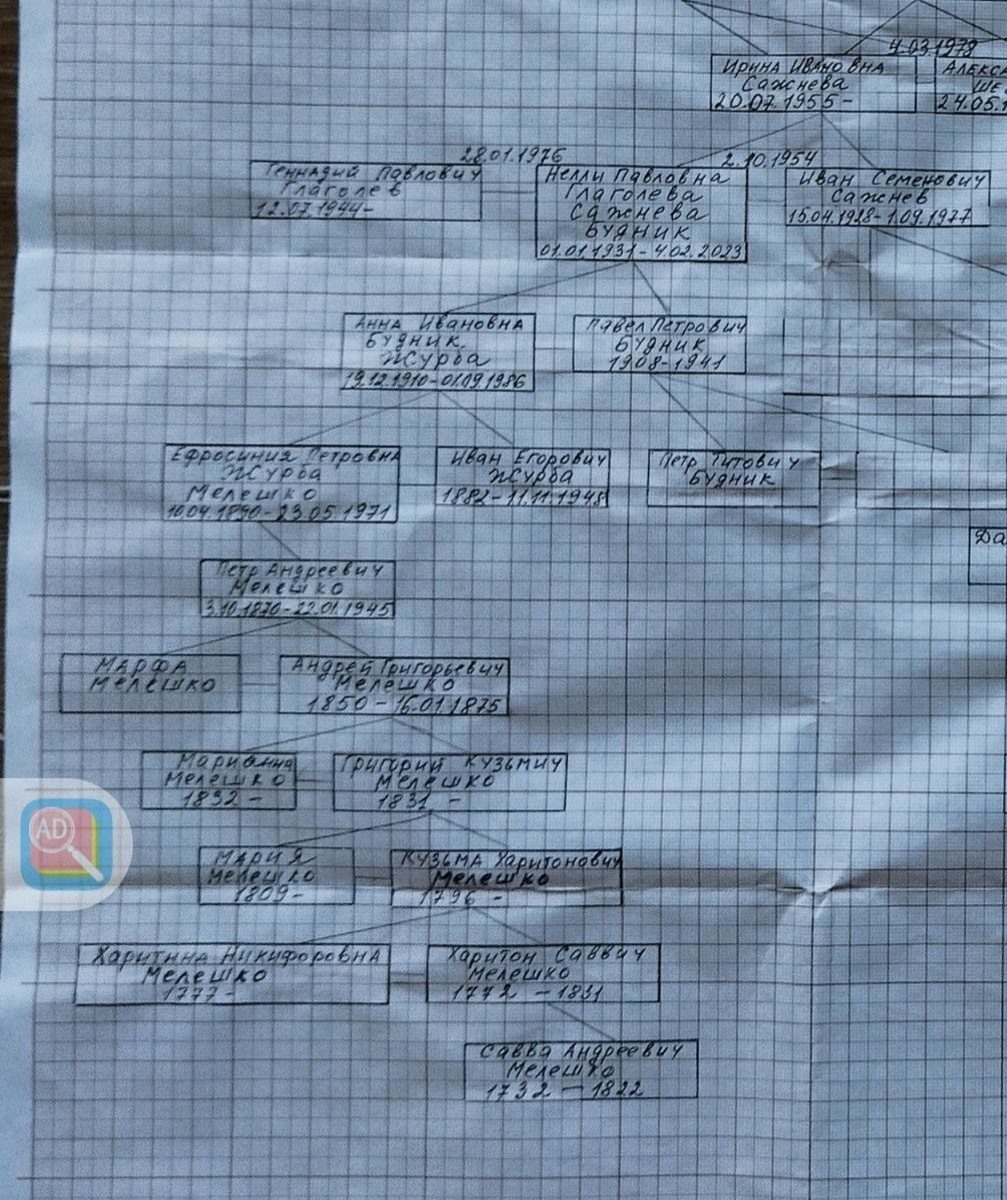 4.03.1979
Ирина Ивановна
Сажнева
20.07.1955-
АЛЕКСА
ШЕ
24.05.1
28.01.1976
2.10.1954
Геннадий Павлович
Глаголев
12.07.1944-
Нелли Павловна
Глаголева
Сажнева
Будник
01.01.1931-4.02.2023
Иван Семенович
Сажнев
15.04.1928-1.09.1977
Анна Ивановна
Будник
Журба
19.12.1910-01.09.1986
Павел Петрович
Будник
1908-1941
Ефросиния Петровна
Журба
Мелешко
10.04.1890-23.05.1971
Иван Егорович
Журба
1882-11.11.1948
Петр Титович
Будник
Да
Петр Андреевич
Мелешко
3.10.1870-22.01.1945
МАРФА
Мелешко
Андрей Григорьевич
Мелешко
1850-16.01.1875
Марианна
Мелешко
1832-
Григорий Кузьмич
Мелешко
1831-
МАРИЯ
Мелешко
1809-
КУЗЬМА Харитонович
Мелешко
1796-
Харитина Никифоровна
Мелешко
1777-
Харитон Саввич
Мелешко
1772-1831
Савва Андреевич
Мелешко
1732-1822
AD